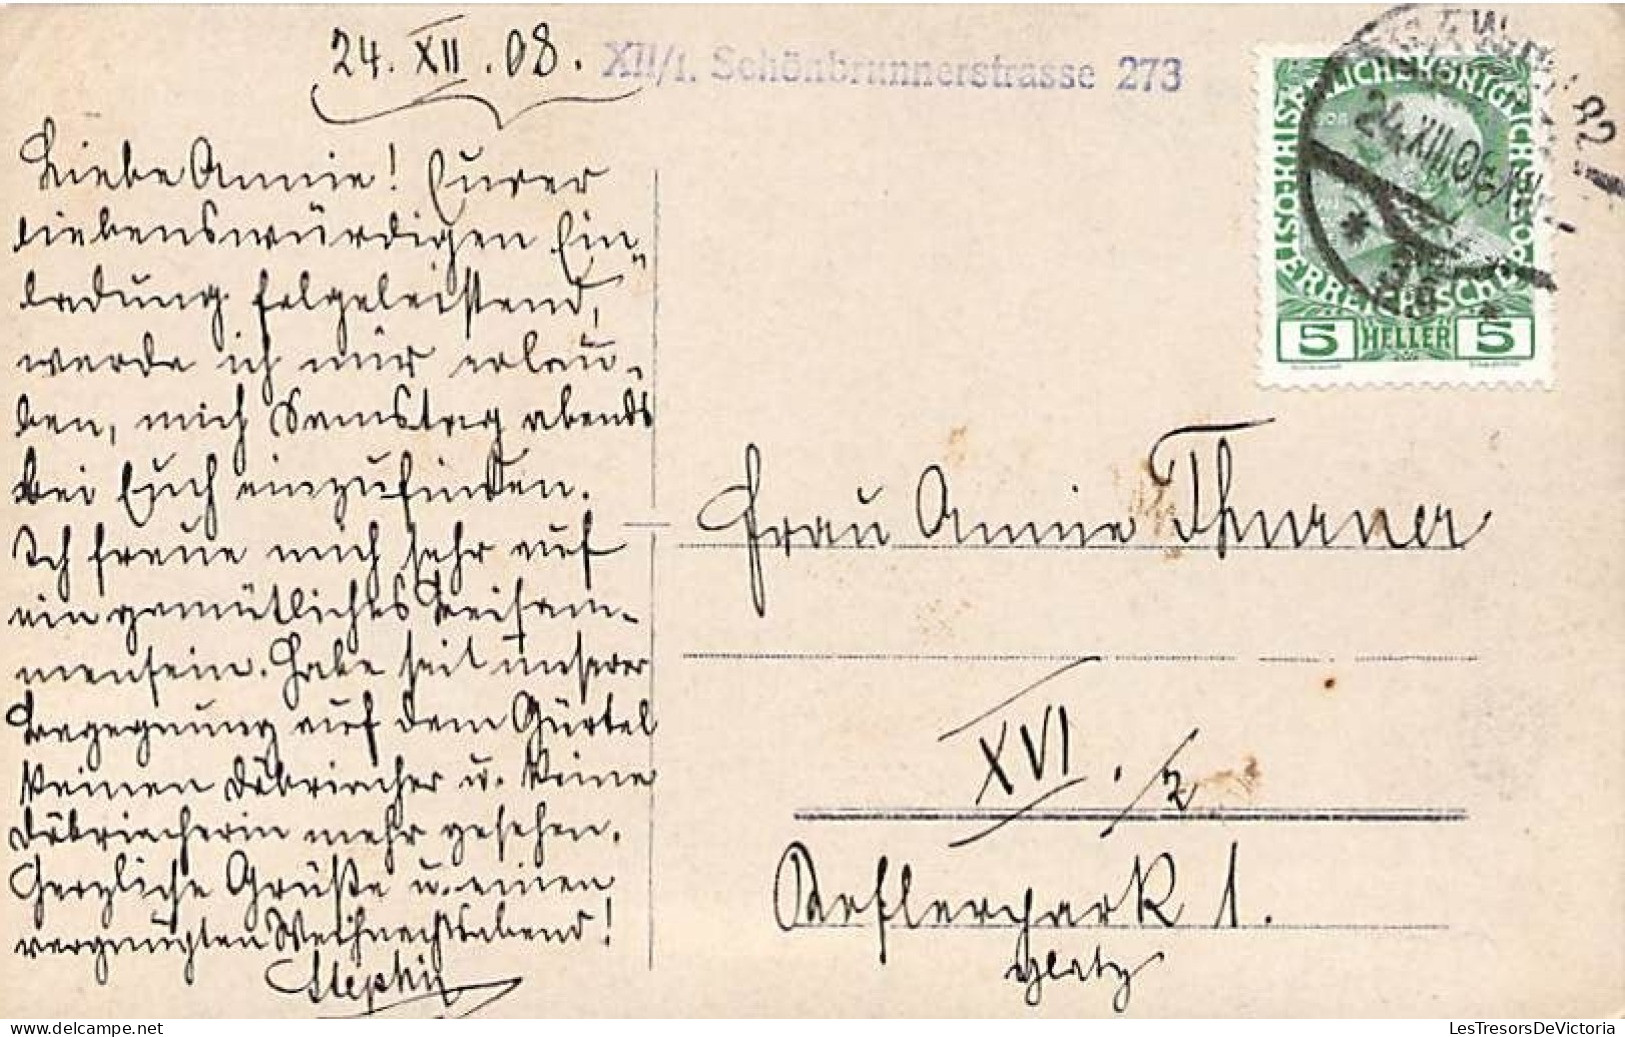 24. XII. 08.
XII/1. Schönbrunnerstrasse 273
Liebe Annie! Eurer
liebenswürdigen Ein„
ladung folgeleistend,
werde ich mir erlau„
ben, mich Samstag abends
bei Euch einzufinden.
Ich freue mich sehr auf
ein gemütliches Beisam„
mensein. Habe seit unserer
Begegnung auf dem Gürtel
keinen u. keine
mehr gesehen.
Herzliche Grüße u. einen
vergnügten Weihnachtsabend!
Stephi
24.XII.08
KAISERLICHE KÖNIGLICHE
ÖSTERREICHISCHE POST
5 HELLER 5
Frau Annie Thurner
XVI./2
1.
platz
LesTresorsDeVictoria
www.delcampe.net